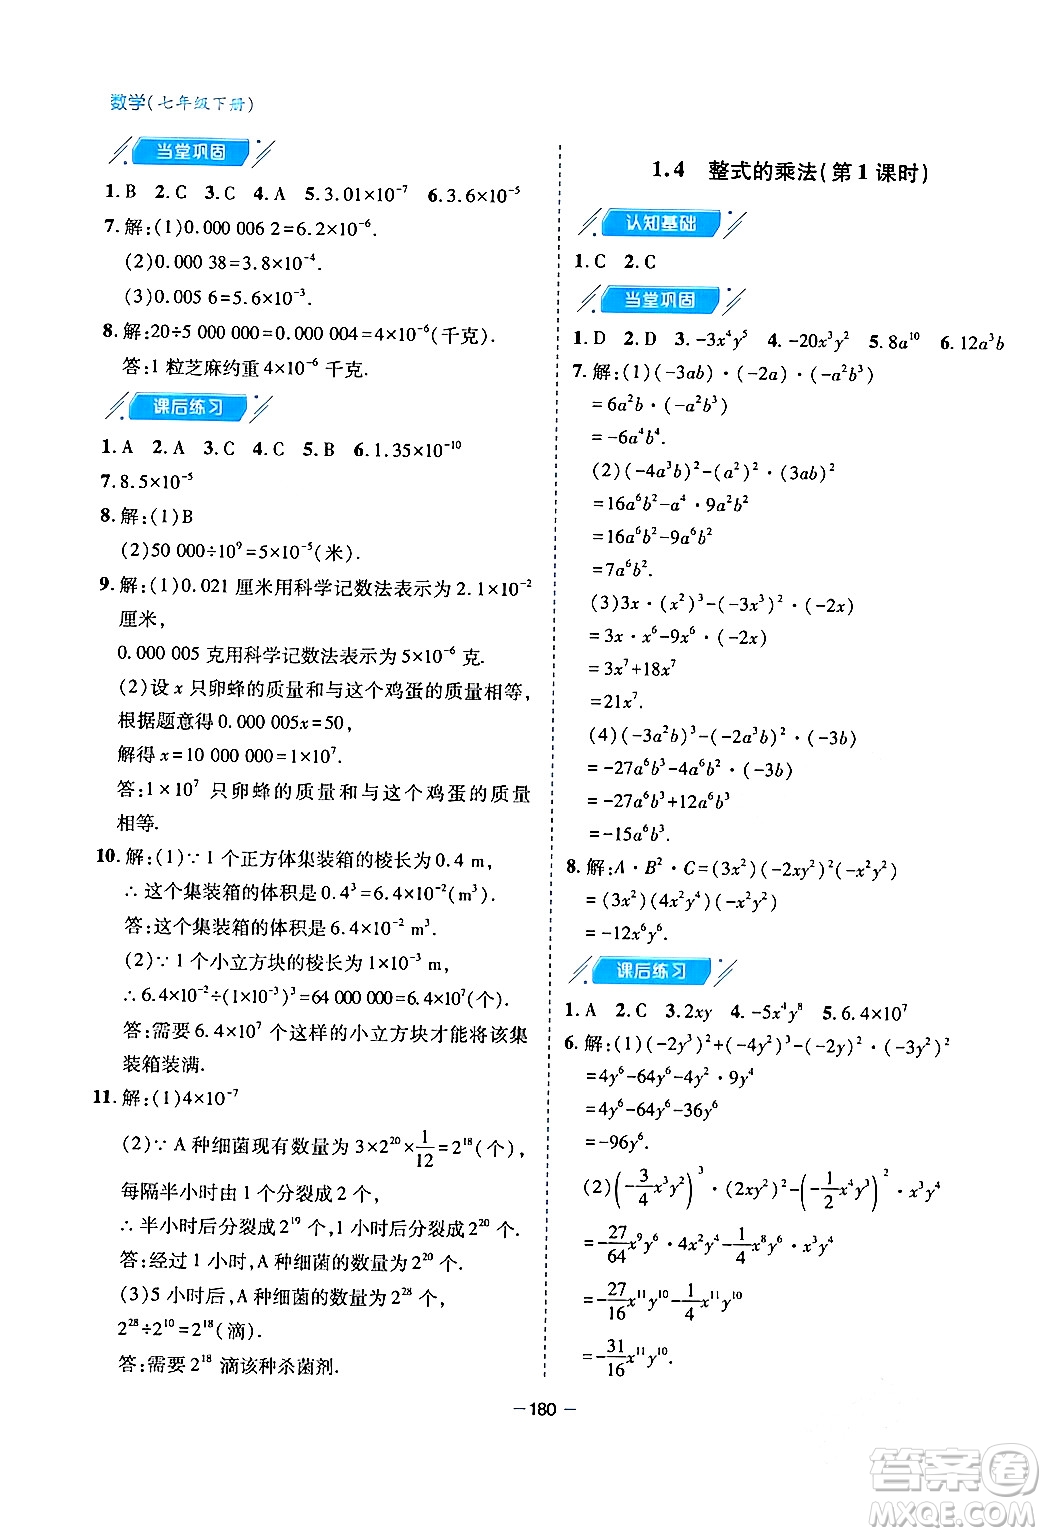 数学(七年级下册)
当堂巩固
1.B 2.C 3.C 4.A 5.3.01×10⁻⁷ 6.3.6×10⁻⁵
7.解:(1)0.000 006 2=6.2×10⁻⁶.
(2)0.000 38=3.8×10⁻⁴.
(3)0.005 6=5.6×10⁻³.
8.解:20÷5 000 000=0.000 004=4×10⁻⁶(千克).
答:1 粒芝麻约重4×10⁻⁶ 千克.
课后练习
1.A 2.A 3.C 4.C 5.B 6.1.35×10⁻¹⁰
7.8.5×10⁻⁵
8.解:(1)B
(2)50 000÷10⁹=5×10⁻⁵(米).
9.解:(1)0.021 厘米用科学记数法表示为2.1×10⁻²
厘米,
0.000 005 克用科学记数法表示为5×10⁻⁶ 克.
(2)设 x 只卵蜂的质量和与这个鸡蛋的质量相等,
根据题意得0.000 005x=50,
解得 x=10 000 000=1×10⁷,
答:1×10⁷ 只卵蜂的质量和与这个鸡蛋的质量
相等.
10.解:(1)∵1 个正方体集装箱的棱长为0.4 m,
∴这个集装箱的体积是0.4³=6.4×10⁻²(m³),
答:这个集装箱的体积是6.4×10⁻² m³.
(2)∵1 个小立方块的棱长为1×10⁻³ m,
∴6.4×10⁻²÷(1×10⁻³)³=64 000 000=6.4×10⁷(个),
答:需要6.4×10⁷ 个这样的小立方块才能将该集
装箱装满.
11.解:(1)4×10⁻⁷
(2)∵A 种细菌现有数量为 3×2²⁰×1/12=2¹⁸(个),
每隔半小时由 1 个分裂成 2 个,
∴半小时后分裂成2¹⁹ 个,1 小时后分裂成2²⁰ 个.
答:经过 1 小时,A 种细菌的数量为2²⁰ 个.
(3)5 小时后,A 种细菌的数量为2²⁸ 个,
2²⁸÷2¹⁰=2¹⁸(滴).
答:需要2¹⁸ 滴该种杀菌剂.
1.4 整式的乘法(第 1 课时)
认知基础
1.C 2.C
当堂巩固
1.D 2.D 3.-3x⁴y⁵ 4.-20x³y² 5.8a¹⁰ 6.12a³b
7.解:(1)(-3ab)·(-2a)·(-a²b³)
=6a²b·(-a²b³)
=-6a⁴b⁴.
(2)(-4a³b)²-(a²)²·(3ab)²
=16a⁶b²-a⁴·9a²b²
=16a⁶b²-9a⁶b²
=7a⁶b².
(3)3x·(x²)³-(-3x³)²·(-2x)
=3x·x⁶-9x⁶·(-2x)
=3x⁷+18x⁷
=21x⁷.
(4)(-3a²b)³-(-2a³b)²·(-3b)
=-27a⁶b³-4a⁶b²·(-3b)
=-27a⁶b³+12a⁶b³
=-15a⁶b³.
8.解:A·B²·C=(3x²)(-2xy²)²(-x²y²)
=(3x²)(4x²y⁴)(-x²y²)
=-12x⁶y⁶.
课后练习
1.A 2.C 3.2xy 4.-5x⁴y⁸ 5.6.4×10⁷
6.解:(1)(-2y³)²+(-4y²)³-(-2y)²·(-3y²)²
=4y⁶-64y⁶-4y²·9y⁴
=4y⁶-64y⁶-36y⁶
=-96y⁶.
(2)(-3/4x³y²)³·(2xy²)²-(-1/2x⁴y³)²·x³y⁴
=-27/64x⁹y⁶·4x²y⁴-1/4x⁸y⁶·x³y⁴
=-27/16x¹¹y¹⁰-1/4x¹¹y¹⁰
=-31/16x¹¹y¹⁰.
-180-
答案圈
MXQE.COM